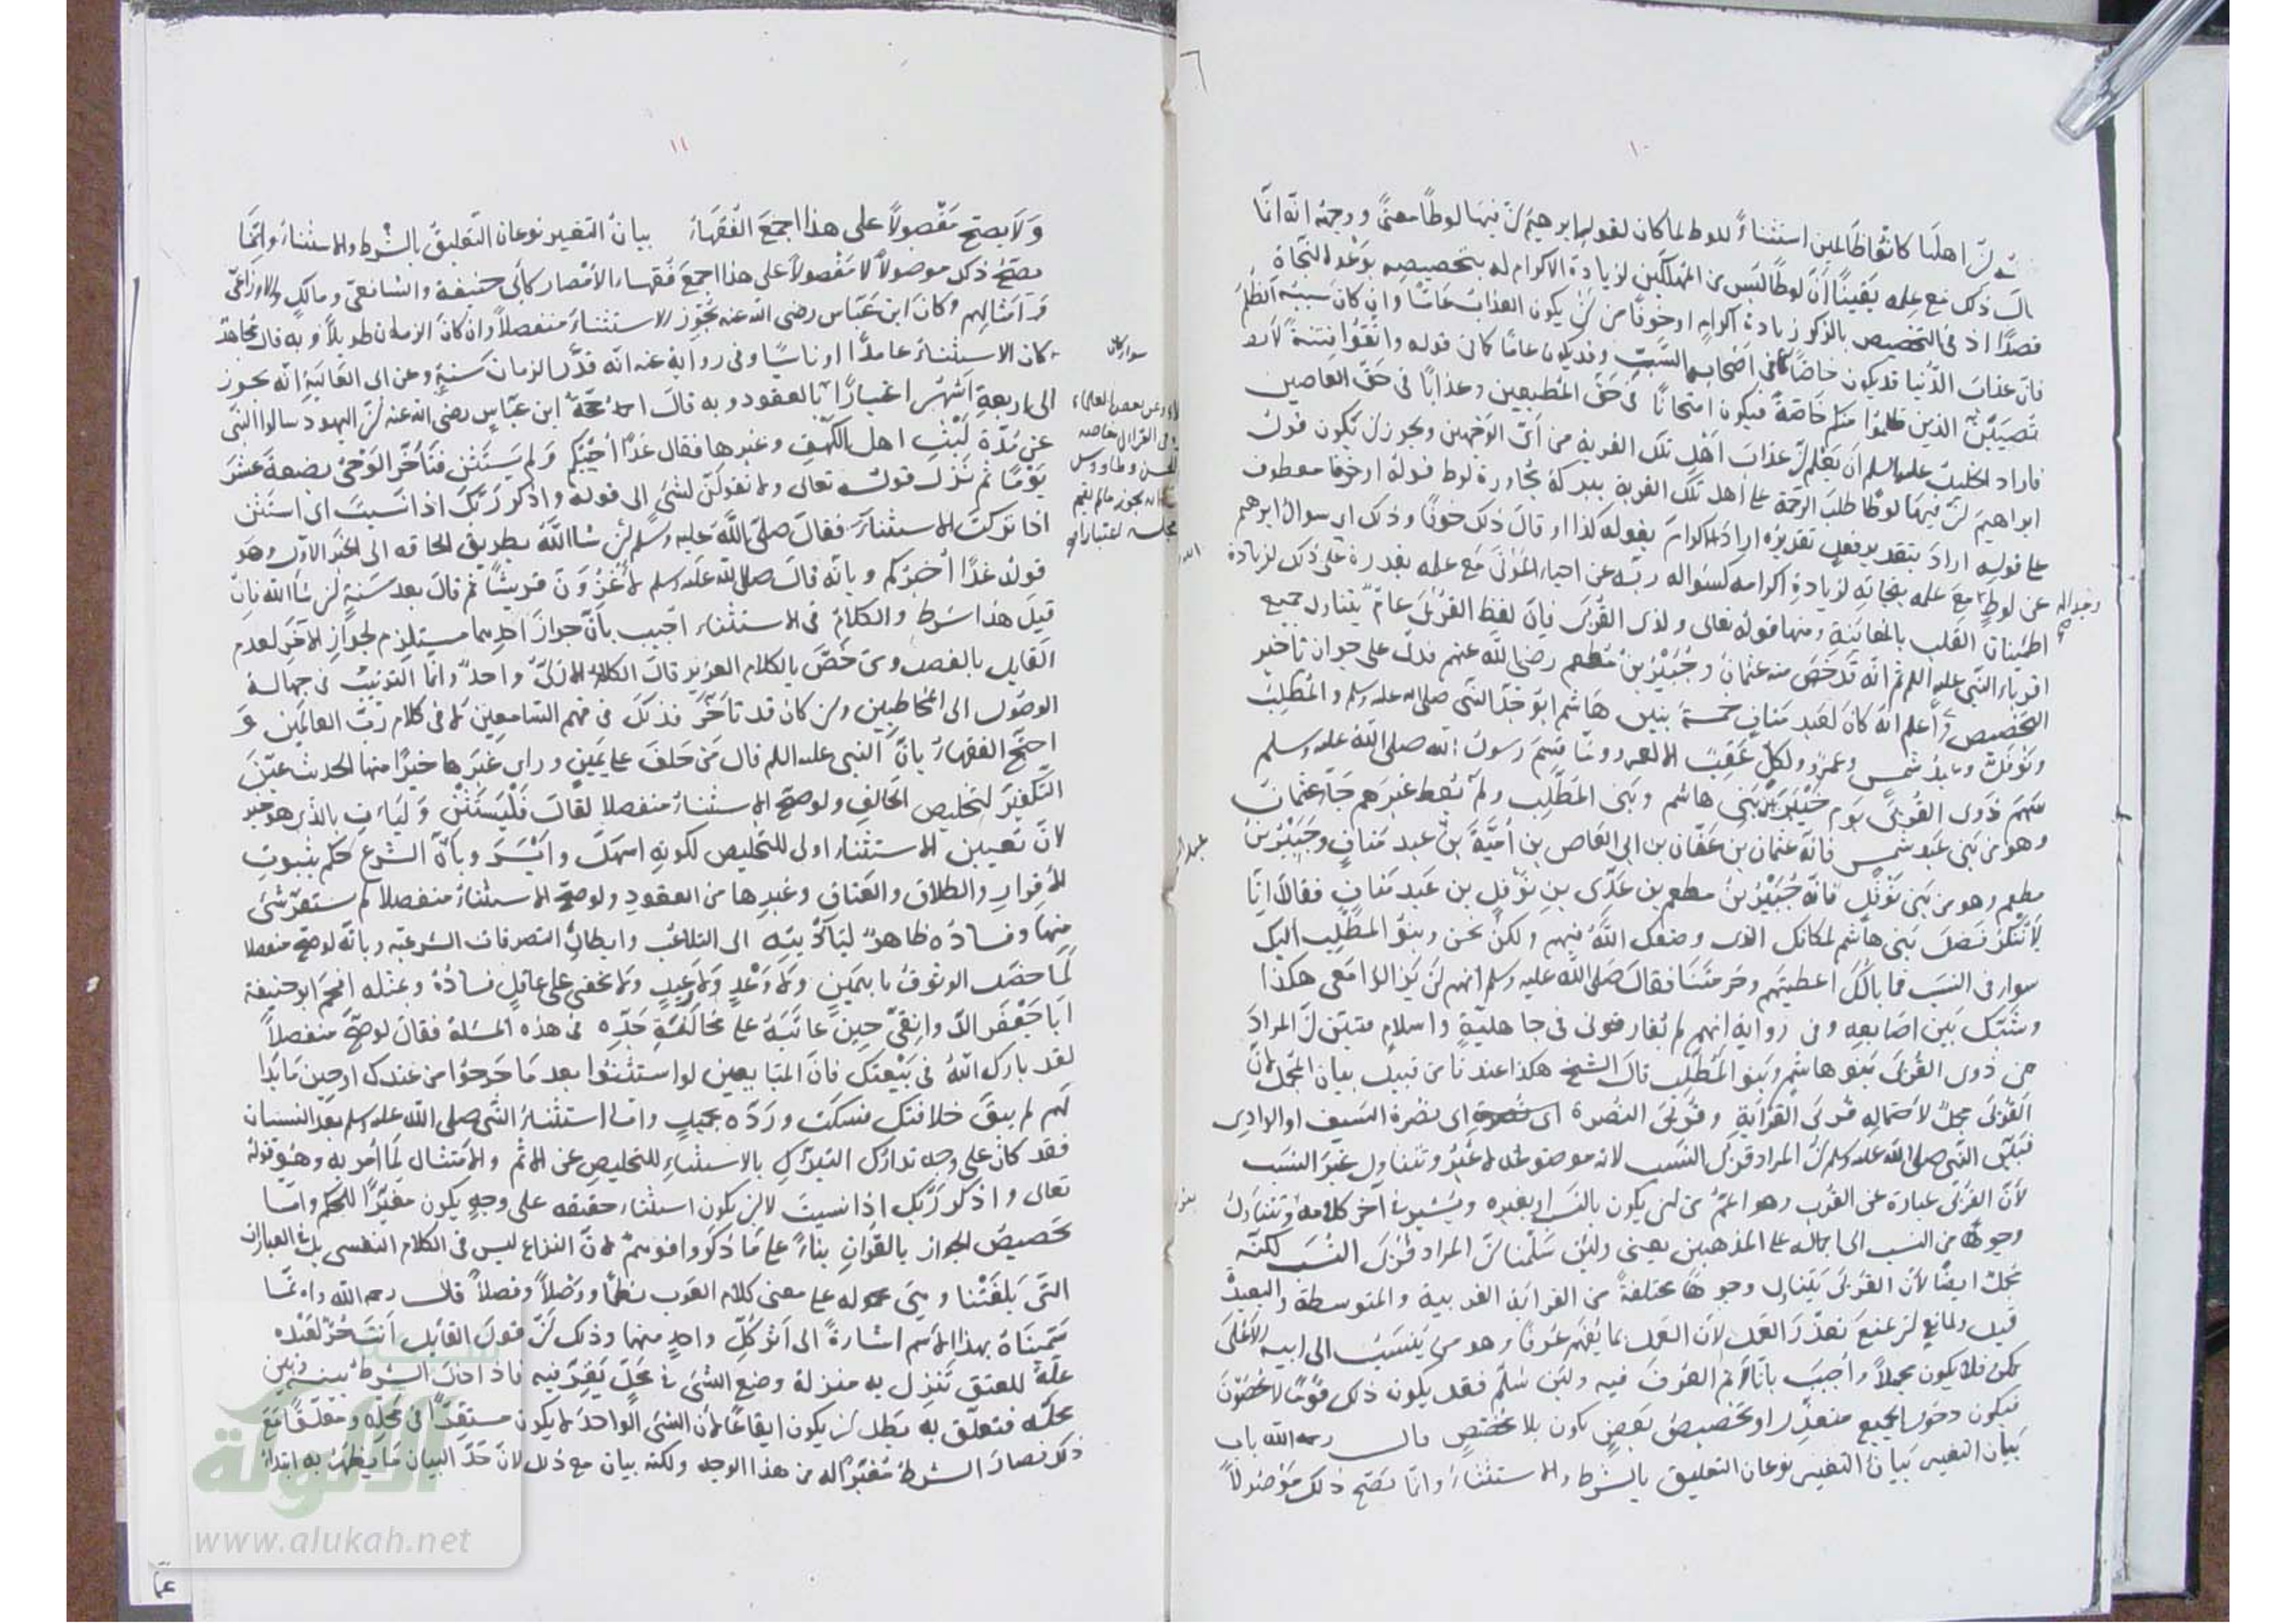 ١٠
ان اهلها كانوا ظالمين استثناءً للوط لما كان لقول ابرهيم ان فيها لوطا معنًى ووجهه انه انما
ذلك مع علمه يقيناً أنّ لوطا ليس من المهلكين لزيادة الاكرام له بتخصيصه بوعد النجاة
قصدًا اذ في التخصيص بالذكر زيادة اكرام او خوفًا من ان يكون العذاب عامًّا وان كان سببه الظلم
فان عذاب الدنيا قد يكون خاصًّا كما في اصحاب السبت وقد يكون عامّا كما في قوله واتقوا فتنة لا
تصيبنّ الذين ظلموا منكم خاصة فيكون امتحانًا في حق المطيعين وعذابًا في حق العاصين
فاراد الخليل عليه السلم أن يعلم ان عذاب أهل تلك القرية من أيّ الوجهين ويجوز ان يكون قول
ابراهيم ان فيها لوطا طلب الرحمة على أهل تلك القرية ببركة مجاورة لوط قوله او خوفا معطوف
على قوله اراد بتقدير فعل تقديره اراد الاكرام بقوله كذا او قال ذلك خوفًا وذلك اي سوال ابرهيم
عن لوط مع علمه بنجاته لزيادة اكرامه كسؤاله ربه عن احياء الموتى مع علمه بقدرة على ذلك لزيادة
اطمئنان القلب بالمعاينة ومنها قوله تعالى ولذى القربى فإن لفظ القربى عامّ يتناول جميع
اقرباء النبي عليه السلم ثم انه قد خص منه عثمان وجبير بن مطعم رضي الله عنهم فدل على جواز تاخير
التخصيص واعلم انه كان لعبد مناف خمسة بنين هاشم ابو جد النبي صلى الله عليه وسلم والمطلب
ونوفل وعبد شمس وعمرو ولكل عقب الا لعمرو ولما قسم رسول الله صلى الله عليه وسلم
سهم ذوى القربى يوم خيبر بين بنى هاشم وبنى المطلب ولم يعط غيرهم جاء عثمان
وهو من بنى عبد شمس فانه عثمان بن عفان بن ابى العاص بن أمية بن عبد مناف وجبير بن
مطعم وهو من بنى نوفل فانه جبير بن مطعم بن عدى بن نوفل بن عبد مناف فقالا انا
لا ننكر فضل بنى هاشم لمكانك الذى وضعك الله فيهم ولكن نحن وبنو المطلب اليك
سواء في النسب فما بالك اعطيتهم وحرمتنا فقال صلى الله عليه وسلم انهم لن يزالوا معى هكذا
وشبك بين اصابعه وفى رواية انهم لم يفارقونى فى جاهلية واسلام فتبين ان المراد
من ذوى القربى بنو هاشم وبنو المطلب قال الشيخ هكذا عندنا من قبيل بيان المجمل لان
القربى مجمل لاحتماله قربى القرابة وقربى النصرة اى نصرة السيف او الوادى
فبين النبي صلى الله عليه وسلم ان المراد قربى النسب لانه موضوع
لأن القربى عبارة عن القرب وهو اعم من ان يكون بالنسب او بغيره ويشير في اخر كلامه ويتناول
وجوها من النسب الى على المذهبين يعنى ولئن سلمنا ان المراد قربى النسب لكنه
مجمل ايضًا لأن القربى يتناول وجوها مختلفة من القرابة القريبة والمتوسطة والبعيدة
قيل ولمانع ان يمنع تعذر العمل لان العمل بما يفهم عرفًا وهو من ينسب الى ابيه الأعلى
ممكن فلا يكون مجملاً وأجيب بانا لا نم العرف فيه ولئن سلم فقد يكون ذلك قومًا لا يحصون
فيكون دخول الجميع متعذرا وتخصيص بعض يكون بلا مخصص قال رحمه الله باب
بيان التغيير بيان التغيير نوعان التعليق بالشرط والاستثناء وانما يصح ذلك موصولاً
١١
ولا يصح مفصولاً على هذا اجمع الفقهاء بيان التغيير نوعان التعليق بالشرط والاستثناء وانما
يصح ذلك موصولاً لا مفصولاً على هذا اجمع فقهاء الأمصار كأبى حنيفة والشافعى ومالك والاوزاعى
وامثالهم وكان ابن عباس رضى الله عنه يجوز الاستثناء منفصلاً وان كان الزمان طويلاً وبه قال مجاهد
كان الاستثناء عامدًا او ناسيًا وفى رواية عنه انه قدر الزمان سنة وعن ابى العالية انه يجوز
الى اربعة اشهر اعتبارًا بالعقود وبه قال احمد حجة ابن عباس رضي الله عنه ان اليهود سالوا النبي
عن مدة لبث اهل الكهف وغيرها فقال غدًا أجيبكم ولم يستثن فتأخر الوحى بضعة عشر
يومًا ثم نزل قوله تعالى ولا تقولن لشئ الى قوله واذكر ربك اذا نسيت اى استثن
اذا تركت الاستثناء فقال صلى الله عليه وسلم إن شاء الله بطريق الحاقه الى الخبر الاول وهو
قوله غدًا أخبركم وبانه قال صلى الله عليه وسلم لأغزون قريشًا ثم قال بعد سنة ان شاء الله فان
قيل هذا شرط والكلام في الاستثناء اجيب بأن جواز احدهما مستلزم لجواز الآخر لعدم
القايل بالفصل ومن خص بالكلام العزيز قال الكلام الازلى واحد وانما الترتيب في جهات
الوصول الى المخاطبين وان كان قد تأخر فذلك في فهم السامعين لا في كلام رب العالمين
احتج الفقهاء بان النبي عليه السلم قال من حلف على يمين وراى غيرها خيرًا منها الحديث عين
التكفير لتخليص الحالف ولو صح الاستثناء منفصلا لقال فليستثن وليأت بالذى هو خير
لأن تعيين الاستثناء اولى للتخليص لكونه اسهل وأيسر وبأن الشرع حكم بثبوت
الاقرار والطلاق والعتاق وغيرها من العقود ولو صح الاستثناء منفصلا لم يستقر شئ
منها وفساده ظاهر لتأديته الى التلاعب وابطال التصرفات الشرعية وبانه لو صح منفصلا
لما حصل الوثوق بيمين ولا وعد ولا وعيد ولا يخفى على عاقل فساده وبمثله افحم ابو حنيفة
ابا جعفر الدوانقى حين عاتبه على مخالفة جده في هذه المسئلة فقال لو صح منفصلاً
لقد بارك الله في بيعتك فان المتابعين لو استثنوا بعد ما خرجوا من عندك او حين ما بدا
لهم لم يبق خلافتك فسكت ورده بجميل واما استثناء النبي صلى الله عليه وسلم بعد النسيان
فقد كان على وجه تدارك التبرك بالاستثناء للتخليص عن الاثم والامتثال لما أمر به وهو قوله
تعالى واذكر ربك اذا نسيت لا لان يكون استثناء حقيقة على وجه يكون مغيرًا للحكم واما
تخصيص الجواز بالقرآن بناءً على ما ذكروا فوهم لان النزاع ليس فى الكلام النفسى بل في العبارات
التى بلغتنا وهى محمولة على معنى كلام العرب نظمًا ووصلاً وفصلاً قال رحمه الله وانما
سميناه بهذا الاسم اشارة الى أثر كل واحد منهما وذلك ان قول القايل أنت حر لعبده
علة للعتق تنزل به منزلة وضع الشئ في محل يقر فيه فاذا حال الشرط بينه وبين
محله فتعلق به بطل ان يكون ايقاعًا لأن الشئ الواحد لا يكون مستقرًا في محله ومعلقًا مع
ذلك فصار الشرط مغيرًا له من هذا الوجه ولكنه بيان مع ذلك لان حد البيان ما يظهر به ابتداء
سواء كان
وعن بعض العلماء
في القرآن خاصة
الحسن وطاووس
انه يجوز ما لم يقم
الألوكة
www.alukah.net